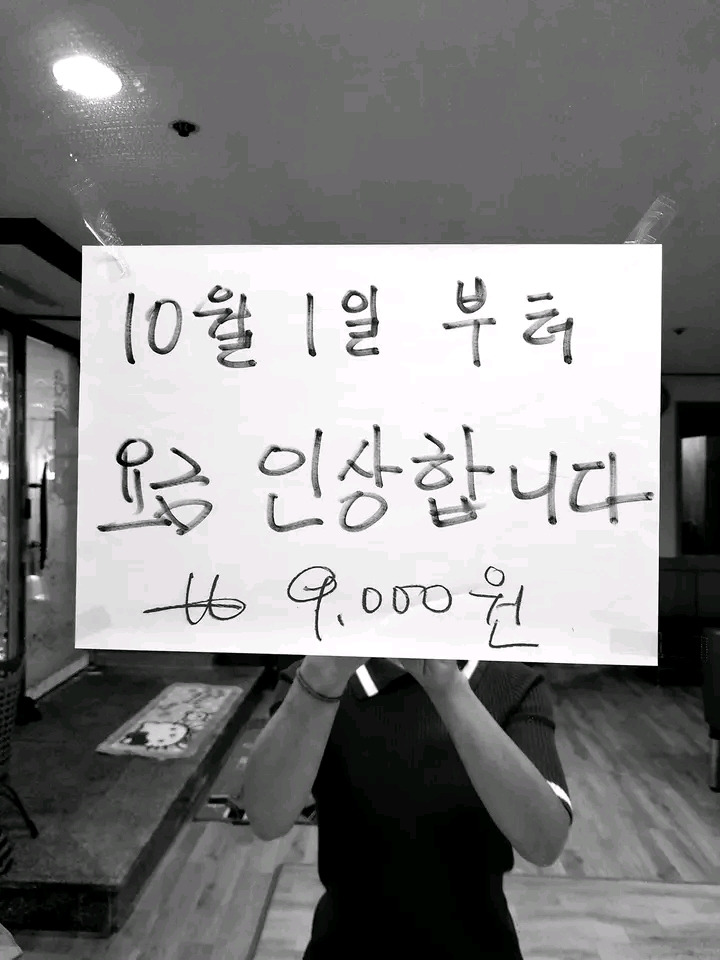 10월 1일 부터
요금 인상합니다
₩ 9.000원